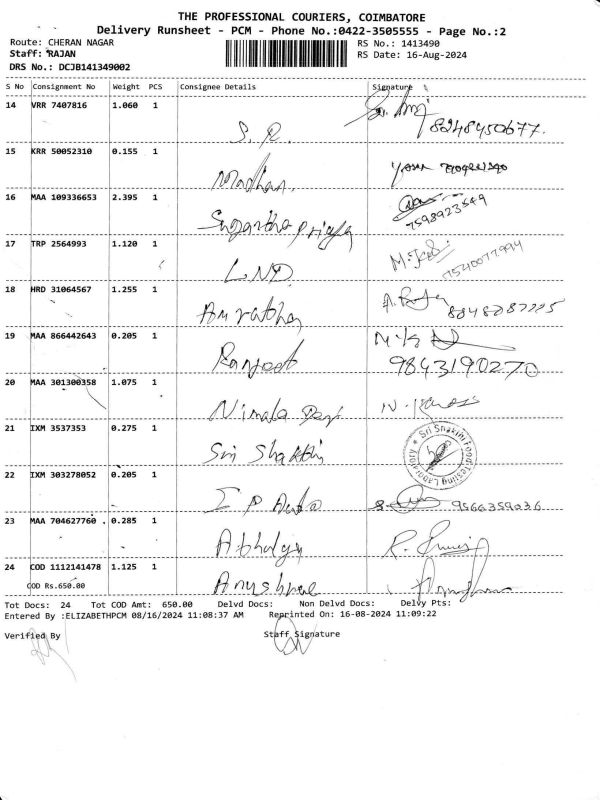 THE PROFESSIONAL COURIERS, COIMBATORE
Delivery Runsheet - PCM - Phone No.:0422-3505555 - Page No.:2
Route: CHERAN NAGAR RS No.: 1413490
Staff: RAJAN RS Date: 16-Aug-2024
DRS No.: DCJB141349002
S No Consignment No Weight PCS Consignee Details Signature
14 VRR 7407816 1.060 1
S. R. 8248450677.
15 KRR 50052310 0.155 1
Madhan.
16 MAA 109336653 2.395 1
Sugantha Priya 7598923549
17 TRP 2564993 1.120 1
L.N.D. 7540077994
18 HRD 31064567 1.255 1
19 MAA 866442643 0.205 1
Ranjeet 9843190270
20 MAA 301300358 1.075 1
Nimala Devi
21 IXM 3537353 0.275 1
Sri Shakthi Sri Shakthi Food Testing Laboratory
22 IXM 303278052 0.205 1
9566359036
23 MAA 704627760 0.285 1
24 COD 1112141478 1.125 1
COD Rs.650.00
Tot Docs: 24 Tot COD Amt: 650.00 Delvd Docs: Non Delvd Docs: Delvy Pts:
Entered By :ELIZABETHPCM 08/16/2024 11:08:37 AM Reprinted On: 16-08-2024 11:09:22
Verified By Staff Signature